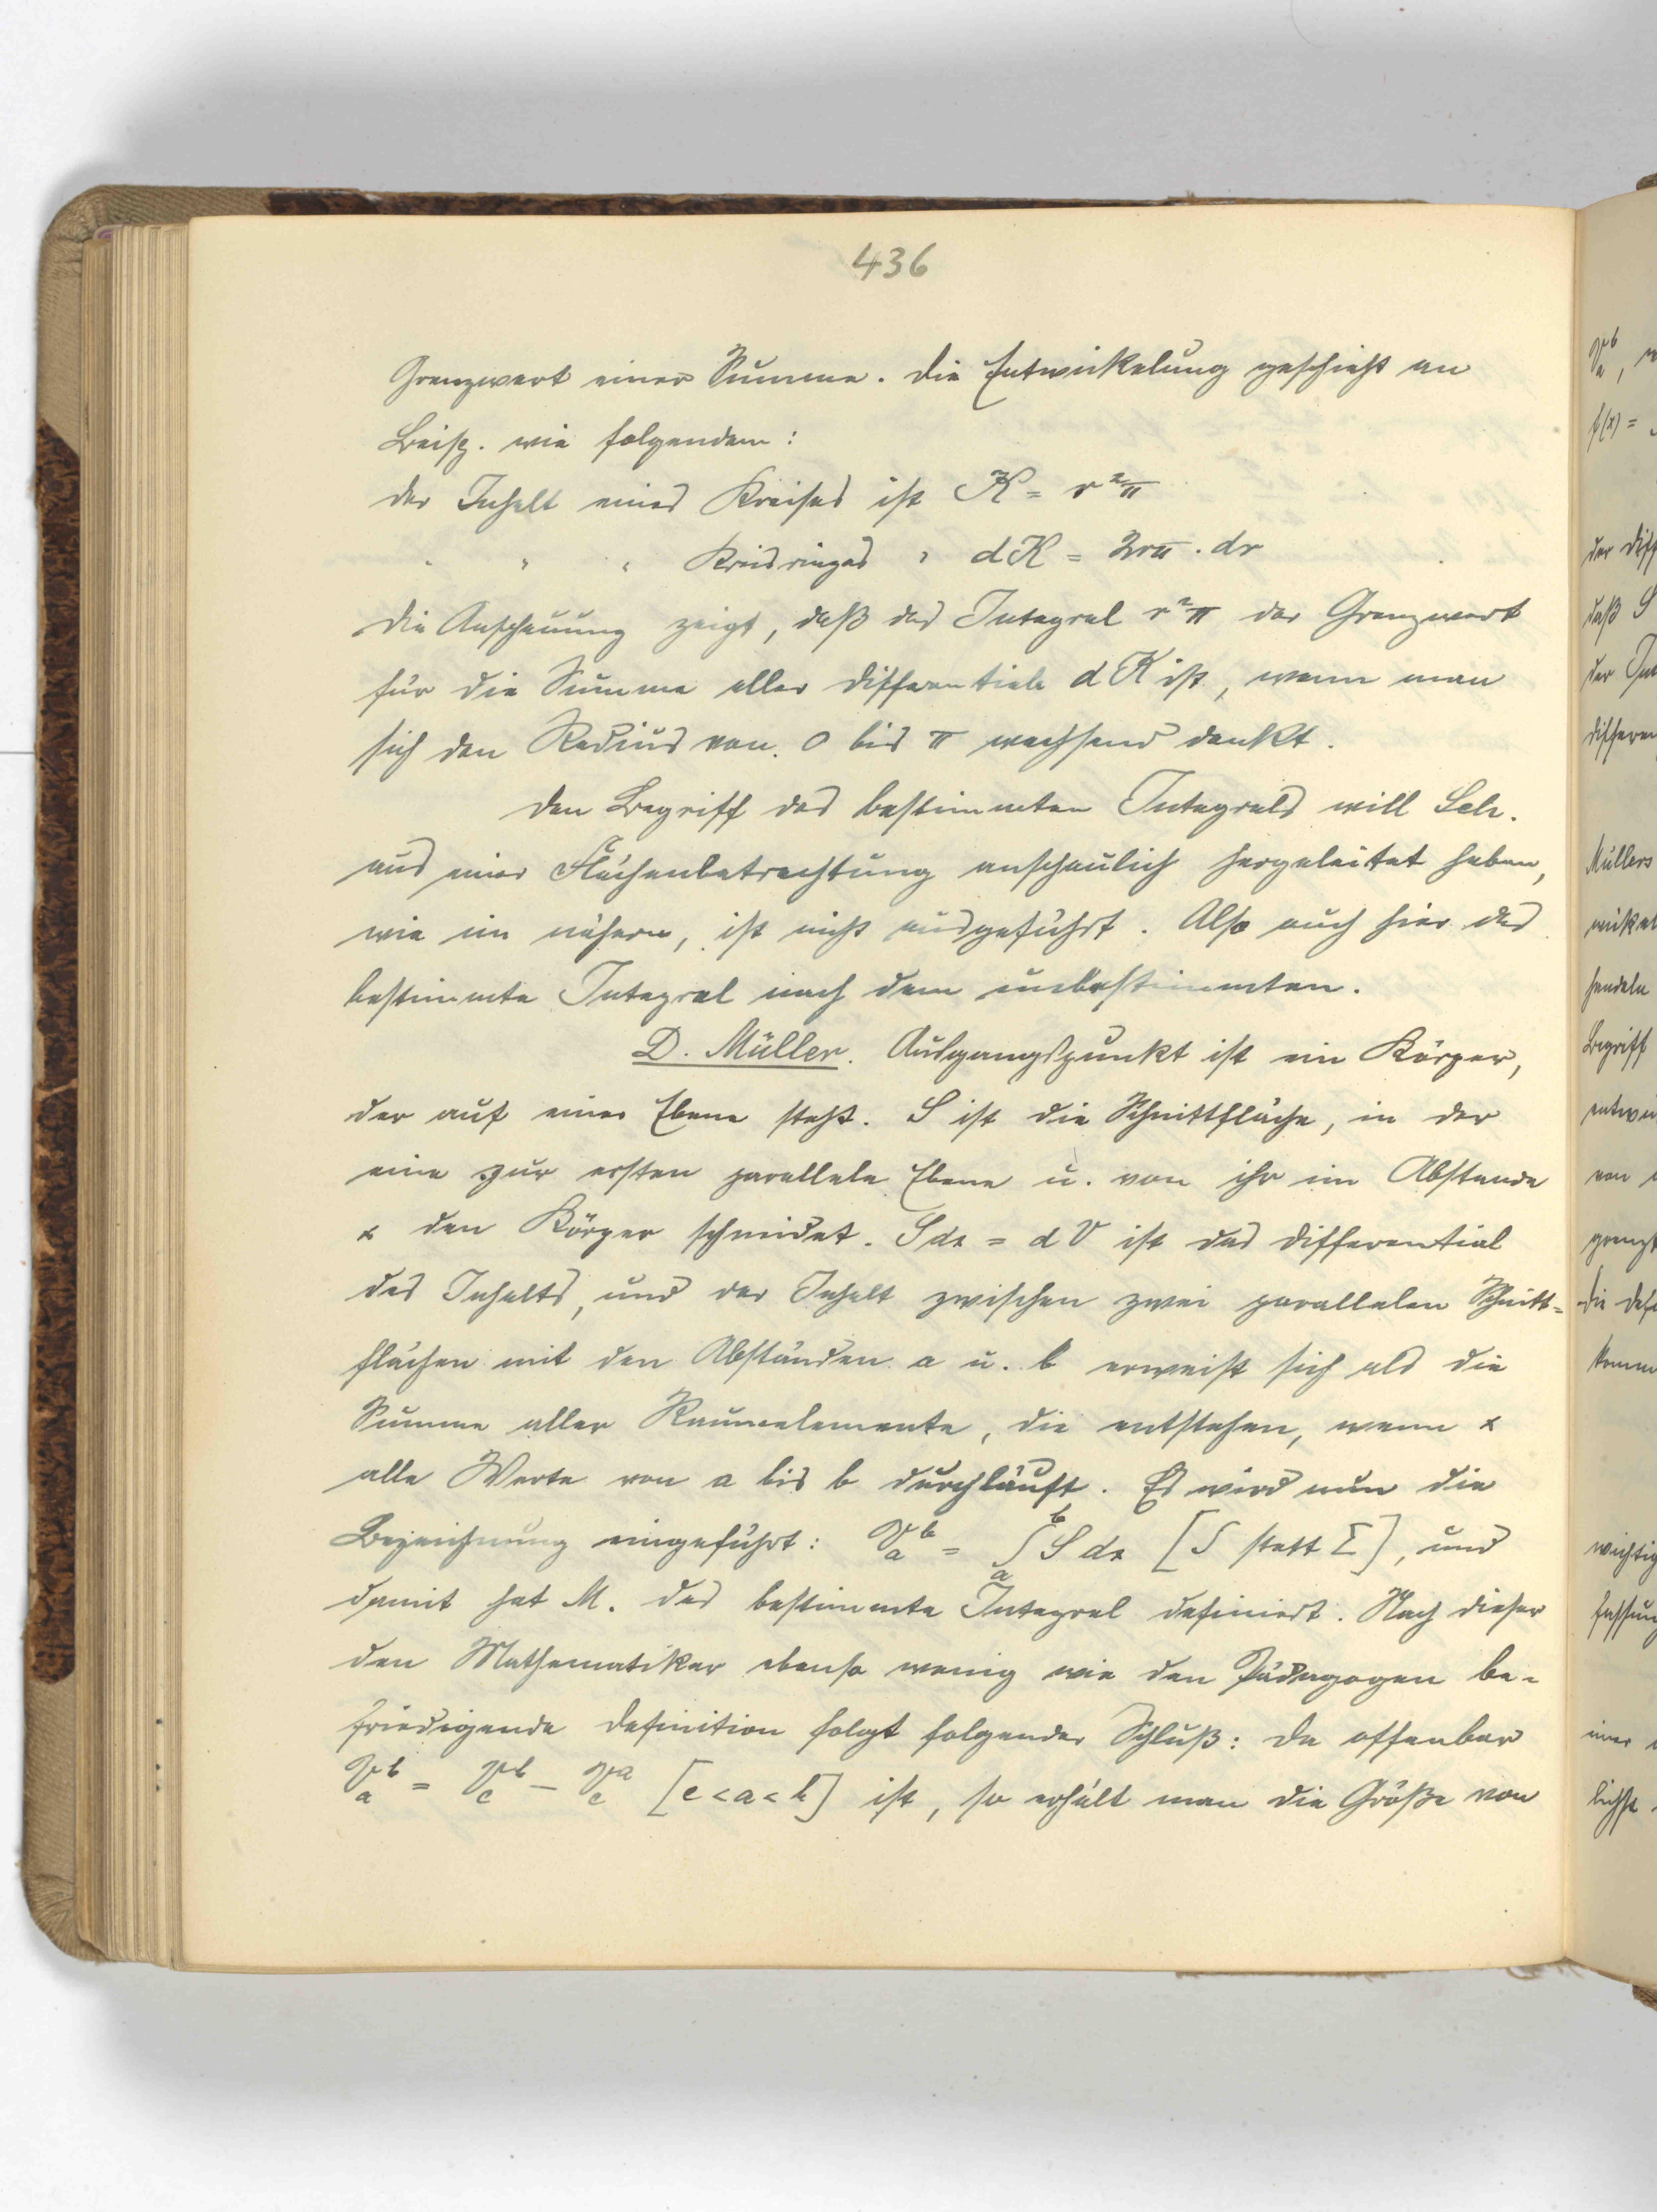 436
Grenzwert einer Summe. Die Entwickelung geschieht an
Beisp. wie folgendem:
Der Inhalt eines Kreises ist K = r²π
" " " Kreisringes " dK = 2rπ · dr
Die Anschauung zeigt, daß das Integral r²π der Grenzwert
für die Summe aller Differentiale dK ist, wenn man
sich den Radius von 0 bis π wachsend denkt.
Den Begriff des bestimmten Integrals will Sch.
aus einer Flächenbetrachtung anschaulich hergeleitet haben,
wie im nähern, ist nicht ausgeführt. Also auch hier das
bestimmte Integral nach dem unbestimmten.
D. Müller. Ausgangspunkt ist ein Körper,
der auf einer Ebene steht. S ist die Schnittfläche, in der
eine zur ersten parallele Ebene u. von ihr im Abstande
x den Körper schneidet. S dx = dV ist das Differential
des Inhalts, und der Inhalt zwischen zwei parallelen Schnitt-
flächen mit den Abständen a u. b erweist sich als die
Summe aller Raumelemente, die entstehen, wenn x
alle Werte von a bis b durchläuft. Es wird nun die
Bezeichnung eingeführt: V_a^b = ∫_a^b S dx [∫ statt Σ], und
damit hat M. das bestimmte Integral definiert. Nach dieser
den Mathematiker ebenso wenig wie den Pädagogen be-
friedigende Definition folgt folgender Schluß: Da offenbar
V_a^b = V_c^b − V_c^a [c<a<b] ist, so erhält man die Größe von
V_a^b,
f(x) =
der Diff
daß S
der
differen
Müllers
wickel
handeln
Begriff
von
grenzt
die Defi
komm
wichtig
fassung